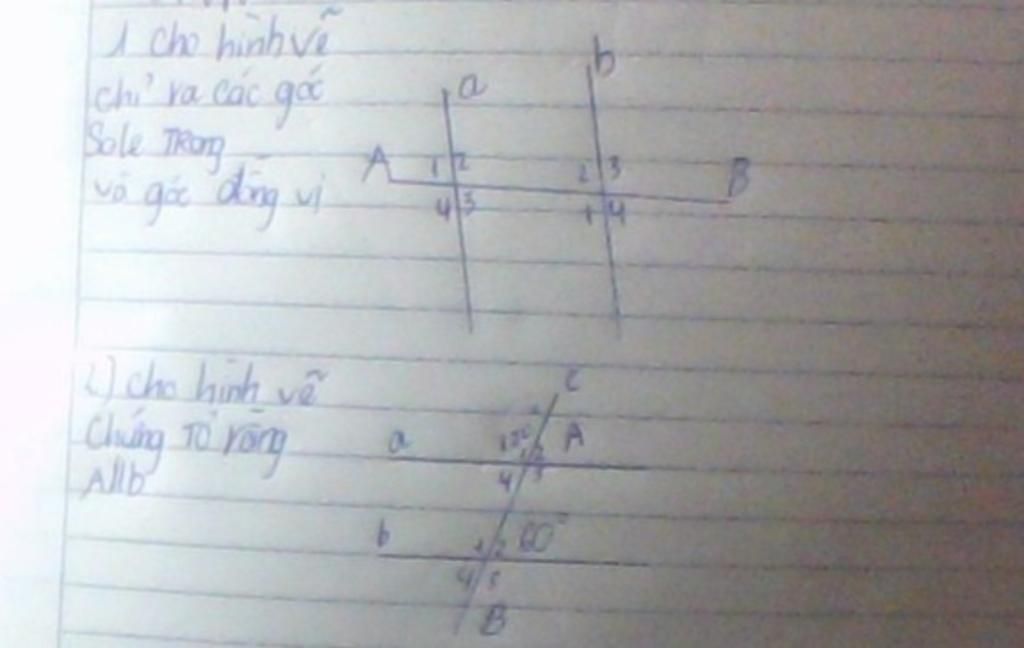 1 cho hình vẽ
chỉ ra các góc
Sole Trong
và góc đồng vị
a
b
A
1 2
2 3
B
4 3
1 4
2) cho hình vẽ
Chứng Tỏ rằng
A//b
c
a
A
4
b
1 2 60°
4 3
B